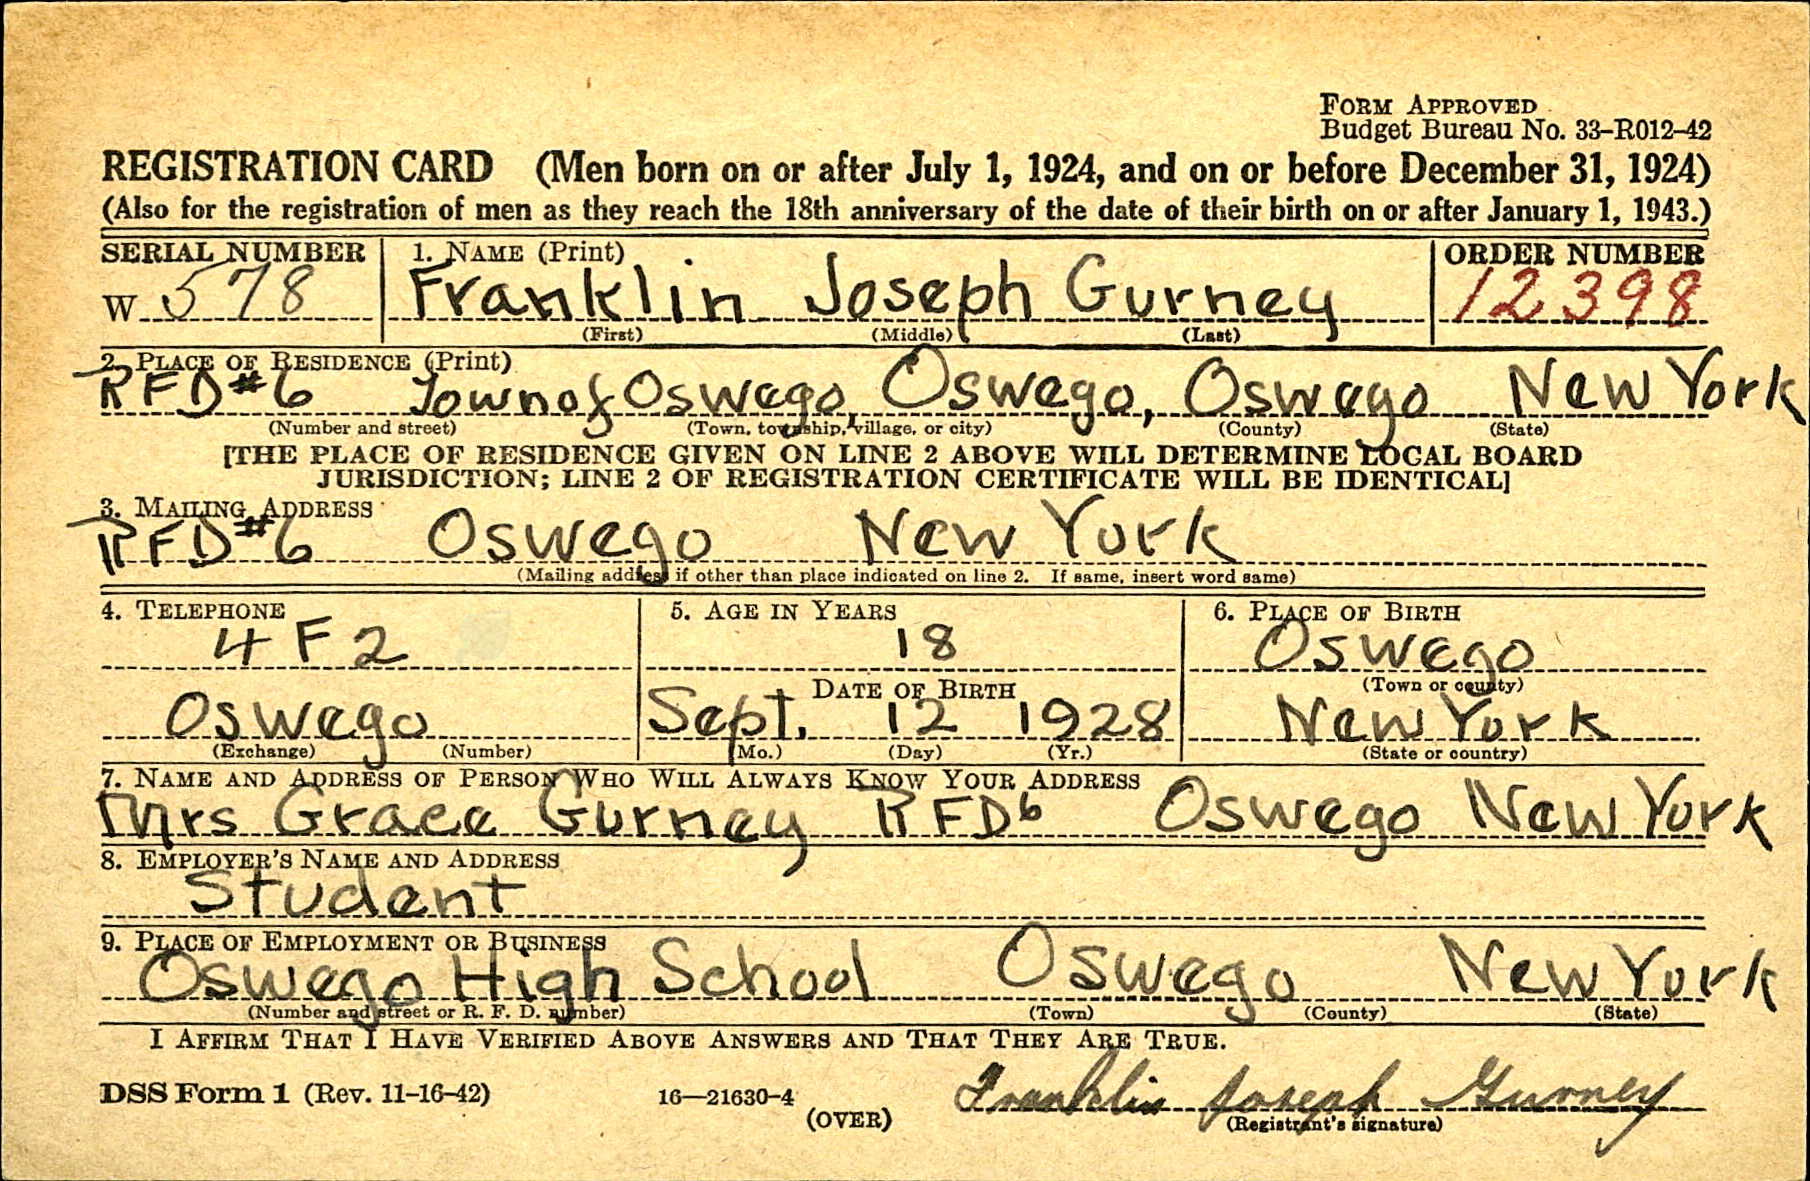 FORM APPROVED
Budget Bureau No. 33-R012-42
REGISTRATION CARD (Men born on or after July 1, 1924, and on or before December 31, 1924)
(Also for the registration of men as they reach the 18th anniversary of the date of their birth on or after January 1, 1943.)
SERIAL NUMBER 1. NAME (Print) ORDER NUMBER
W 578 Franklin Joseph Gurney 12398
(First) (Middle) (Last)
2. PLACE OF RESIDENCE (Print)
RFD#6 Town of Oswego, Oswego, Oswego New York
(Number and street) (Town, township, village, or city) (County) (State)
[THE PLACE OF RESIDENCE GIVEN ON LINE 2 ABOVE WILL DETERMINE LOCAL BOARD
JURISDICTION; LINE 2 OF REGISTRATION CERTIFICATE WILL BE IDENTICAL]
3. MAILING ADDRESS
RFD#6 Oswego New York
(Mailing address if other than place indicated on line 2. If same, insert word same)
4. TELEPHONE 5. AGE IN YEARS 6. PLACE OF BIRTH
4F2 18 Oswego
DATE OF BIRTH (Town or county)
Oswego Sept. 12 1928 New York
(Exchange) (Number) (Mo.) (Day) (Yr.) (State or country)
7. NAME AND ADDRESS OF PERSON WHO WILL ALWAYS KNOW YOUR ADDRESS
Mrs Grace Gurney RFD6 Oswego New York
8. EMPLOYER'S NAME AND ADDRESS
Student
9. PLACE OF EMPLOYMENT OR BUSINESS
Oswego High School Oswego New York
(Number and street or R. F. D. number) (Town) (County) (State)
I AFFIRM THAT I HAVE VERIFIED ABOVE ANSWERS AND THAT THEY ARE TRUE.
DSS Form 1 (Rev. 11-16-42) 16—21630-4 Franklin Joseph Gurney
(OVER) (Registrant's signature)